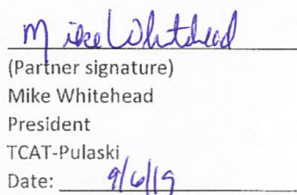 Mike Whitehead
(Partner signature)
Mike Whitehead
President
TCAT-Pulaski
Date: 9/6/19